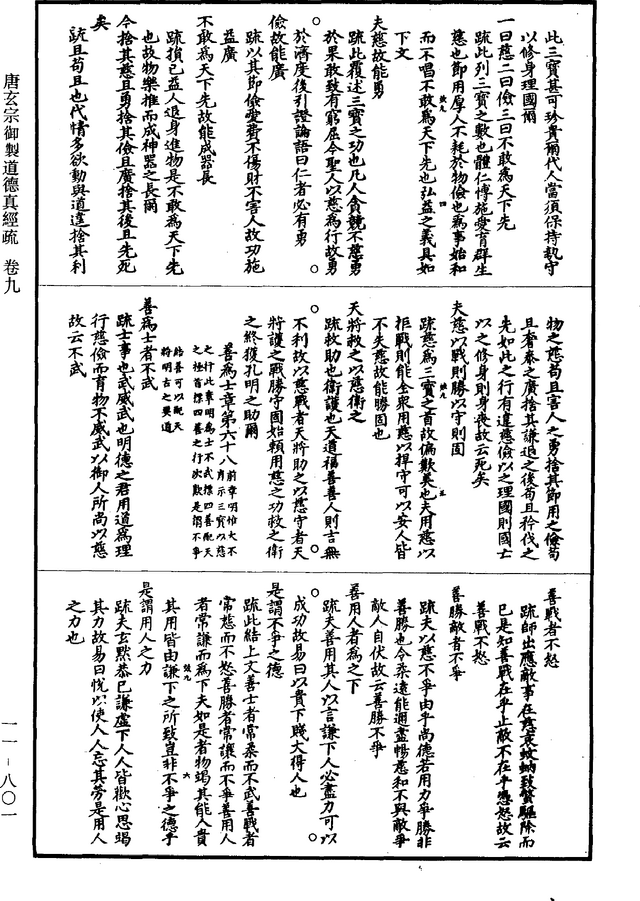 此三寶甚可珍貴爾代人當須保持執守
以修身理國爾
一曰慈二曰儉三曰不敢為天下先
疏此列三寶之數也體仁博施愛育群生
慈也節用厚人不耗於物儉也為事始和
而不唱不敢為天下先也弘益之義具如
下文
夫慈故能勇
疏此覆述三寶之功也凡人貪競不慈勇
於果敢致有窮屈今聖人以慈為行故勇
於濟度後引證論語曰仁者必有勇
儉故能廣
疏以其節儉愛費不傷財不害人故功施
益廣
不敢為天下先故能成器長
疏損己益人退身進物是不敢為天下先
也故物樂推而成神器之長爾
今捨其慈且勇捨其儉且廣捨其後且先死
矣
疏且苟且也代情多欲動與道違捨其利
物之慈苟且害人之勇捨其節用之儉苟
且奢泰之廣捨其謙退之後苟且矜伐之
先如此之行有違慈儉以之理國則國亡
以之修身則身喪故云死矣
夫慈以戰則勝以守則固
疏慈為三寶之首故偏歎美也夫用慈以
拒戰則能全衆用慈以捍守可以安人皆
不失慈故能勝固也
天將救之以慈衛之
疏救助也衛護也天道福善善人則吉無
不利故以慈戰者天將助之以慈守者天
將護之戰勝守固始賴用慈之功救之衛
之終獲孔明之助爾
善為士章第六十八
前章明怕大不
肖示三寶以慈
之行此章明為士不武標四善配天
之極首標四善之行次歎是謂不爭
結善可以配天
將明古之要道
善為士者不武
疏士事也武威武也明德之君用道為理
行慈儉而育物不威武以御人所尚以慈
故云不武
善戰者不怒
疏師出應敵事在慈哀蚊蚋致螫驅除而
已是知善戰在乎止敵不在乎憑怒故云
善戰不怒
善勝敵者不爭
疏夫以慈不爭由乎尚德若用力爭勝非
善勝也今柔遠能邇盡暢慈和不與敵爭
敵人自伏故云善勝不爭
善用人者為之下
疏夫善用其人以言謙下人必盡力可以
成功故易曰以貴下賤大得人也
是謂不爭之德
疏此結上文善士者常柔而不武善戰者
常慈而不怒善勝者常讓而不爭善用人
者常謙而為下夫如是者物竭其能人貴
其用皆由謙下之所致豈非不爭之德乎
是謂用人之力
疏夫玄默恭己謙虛下人人皆歡心思竭
其力故易曰悅以使人人忘其勞是用人
之力也
唐玄宗御製道德真經疏 卷九
一一-八〇一